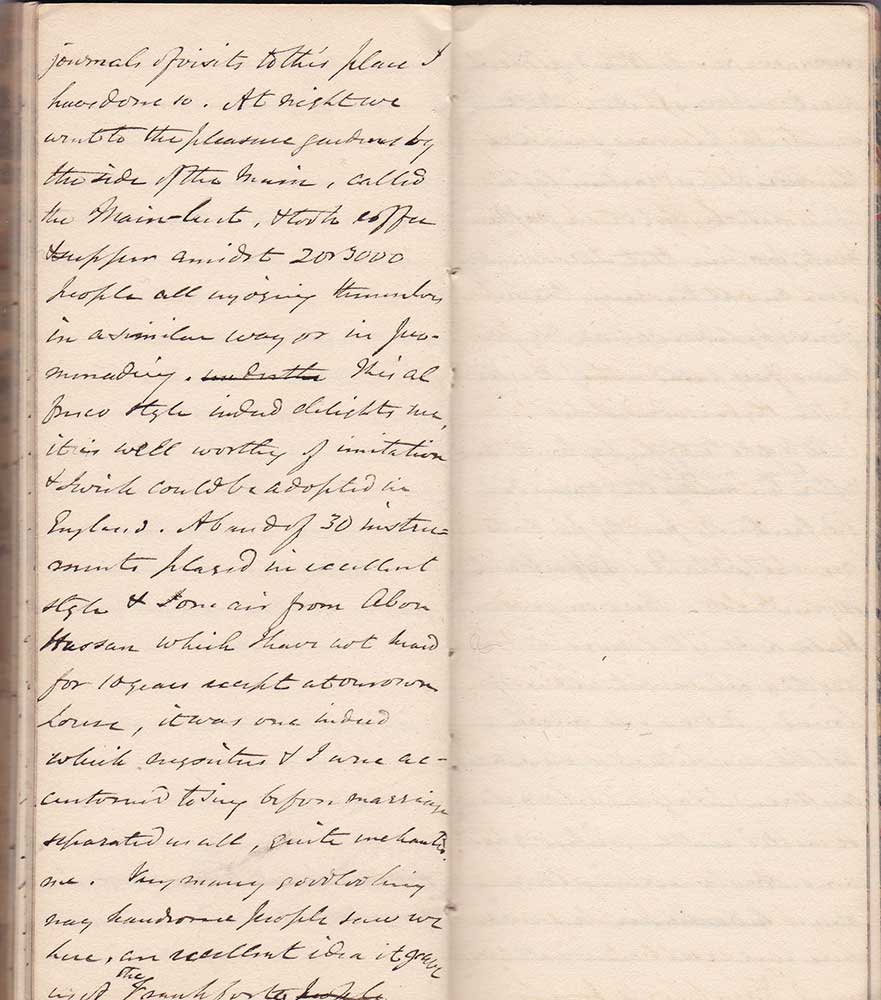 journals of visits to this place I
have done so. At night we
went to the pleasure gardens by
the side of the Main, called
the Main-lust, & took coffee
& supper amidst 2 or 3000
people all enjoying themselves
in a similar way or in pro-
menading. under the This al
fresco style indeed delights me,
it is well worthy of imitation
& I wish could be adopted in
England. A band of 30 instru-
ments played in excellent
style & one air from Abon
Hassan which I have not heard
for 10 years except at our own
house, it was one indeed
which my sisters & I were ac-
customed to sing before marriage
separated us all, quite enchanted
me. Very many good looking
nay handsome people saw we
here, an excellent idea it gave
us of the Frankforters people